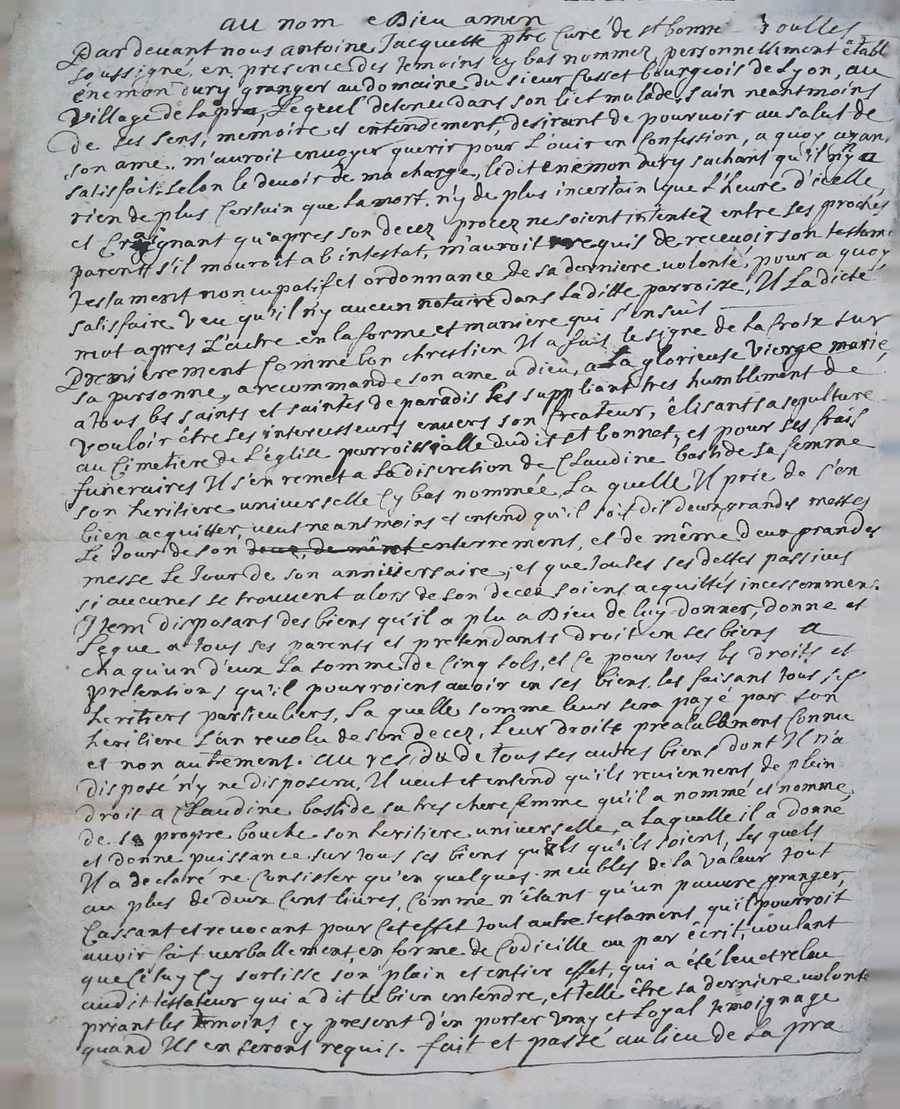 au nom e Dieu amen
Par devant nous antoine Jacquette ptre Curé de st bonnet
soussigné, en presence des temoins cy bas nommez personnellement établ
enemond dury granger au domaine du sieur fusset bourgeois de Lyon, au
village de la pra, Lequel detenu dans son lict malade, sain neantmoins
de ses sens, memoire et entendement, desirant de pourvoir au salut de
son ame, m'auroit envoyer querir pour L'ouir en Confession, a quoy ayan
satisfait, selon le devoir de ma charge, ledit enemon dury sachant qu'il n'y a
rien de plus Certain que la mort, n'y de plus incertain que L'heure d'icelle,
et Craignant qu'apres son decez procez ne soient intentez entre ses proches
parents s'il mouroit ab intestat, m'auroit requis de recevoir son testame
testament noncupatif et ordonnance de sa derniere volonté, pour a quoy
satisfaire veu qu'il n'y aucun notaire dans laditte parroisse, Il La dicté
mot apres L'autre en la forme et maniere qui s'ensuit
Premierement Comme bon chrestien Il a fait le signe de la Croix sur
sa personne, a recommandé son ame a dieu, a La glorieuse vierge marie,
a tous les saints et saintes de paradis les suppliant tres humblement de
vouloir être ses intercesseurs envers son Createur, élisant sa sepulture
au Cimetiere de L'église parroissialle dudit st bonnet, et pour ses frais
funeraires Il s'en remet a La discretion de Claudine bastide sa femme
son heritiere universelle Cy bas nommée, La quelle Il prie de s'en
bien acquitter, veut neantmoins et entend qu'il soit dit deux grandes messes
Le Jour de son decez, de même enterrement, et de même deux grandes
messe Le Jour de son anniversaire, et que toutes ses dettes passives
si aucunes se trouvent alors de son decez soient acquittés incessamment.
Item disposant des biens qu'il a plu a Dieu de luy donner, donne et
Legue a tous ses parents et pretendants droit en ses biens a
chaqu'un d'eux La somme de Cinq sols, et Ce pour tous les droits et
pretentions qu'il pourroient avoir en ses biens, les faisant tous ses
heritiers particuliers, La quelle somme leur sera payé par son
heritiere L'an revolu de son decez, Leur droits prealablement Connu
et non autrement. au residu de tous ses autres biens dont Il n'a
disposé n'y ne disposera, Il veut et entend qu'ils reviennent de plein
droit a Claudine bastide sa tres chere femme qu'il a nommé et nomme,
de sa propre bouche son heritiere universelle, a Laquelle il a donné
et donne puissance sur tous ses biens quels qu'ils soient, Les quels
Il a declaré ne Consister qu'en quelques meubles de la valeur tout
au plus de deux Cent livres, Comme n'étant qu'un pauvre granger
Cassant et revocant pour Cet effet tout autre testament, qu'il pourroit
avoir fait verballement, en forme de Codicille ou par écrit, voulant
que Celuy Cy sortisse son plein et entier effet, qui a été leu et releu
audit testateur qui a dit le bien entendre, et telle être sa derniere volonté
priant les temoins cy present d'en porter vray et Loyal temoignage
quand Ils en seront requis. fait et passé au lieu de La pra